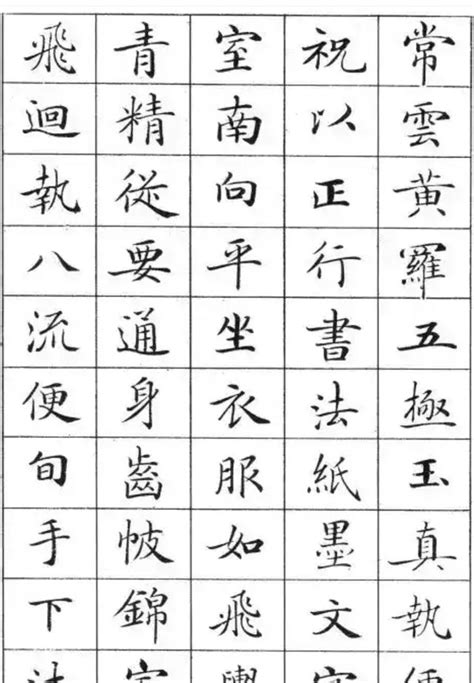 常雲黃羅五極玉真執
祝以正行書法紙墨文
室南向平坐衣服如飛
青精從要通身齒帔錦
飛迴執八流便旬手下